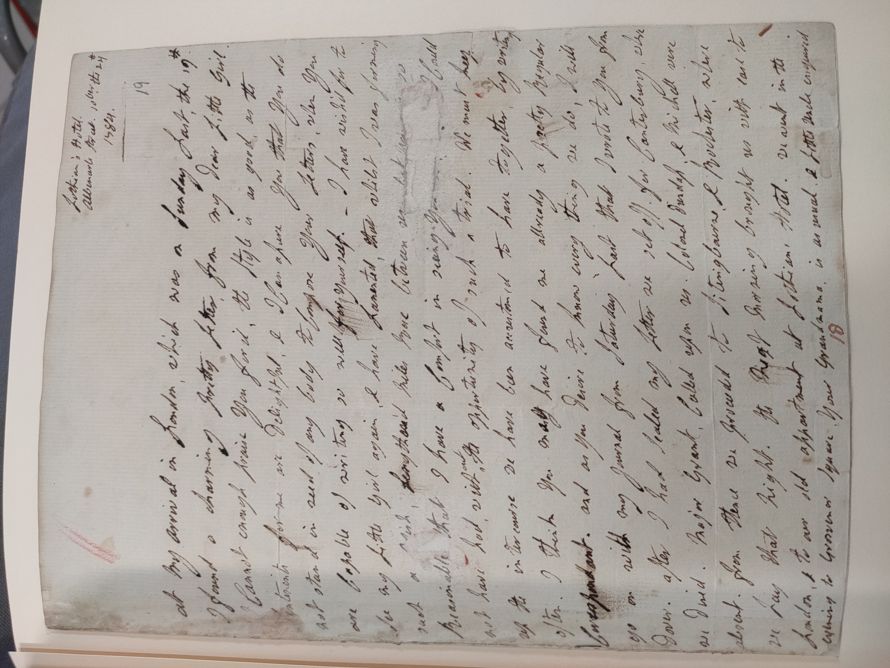 Lothian's Hotel.
Albemarle Street.
1784.
19
at My arrival in London, which was on Sunday last, the 19th
I found a charming pretty Letter from my Dear Little Girl.
I Cannot enough praise You for it, the Style is as good, as the
are Delightful, & I Can assure You that You do
not stand in need of any body to Compose Your Letters, when You
are Capable of writing so well for Yourself. - I have wished for to
see my Little Girl again, & have Lamented, that whilst I was forming
such a wish, thousand miles were between
Reasonable that I have a Comfort in seeing You I Could
not have had, without the opportunity of such a trial. We must keep
up the intercourse we have been accustomed to have together, by writing
often. I think You may have found me already a pretty Regular
Correspondent. and as You Desire to know every thing we do, I will
go on with my Journal from Saturday last that I wrote to You from
Dover. after I had sealed my Letter we set off for Canterbury where
we Dined. Major Grant Called upon us. Colonel Dundas & Michell were
absent. from thence we proceeded to Sittingbourne & Rochester, where
we lay that night. the Next Morning brought us with ease to
London, & to our old appartment at Lothians Hotel. we went in the
evening to Grosvenor Square. Your Grandmama is as usual. & Little Uncle enquired
18